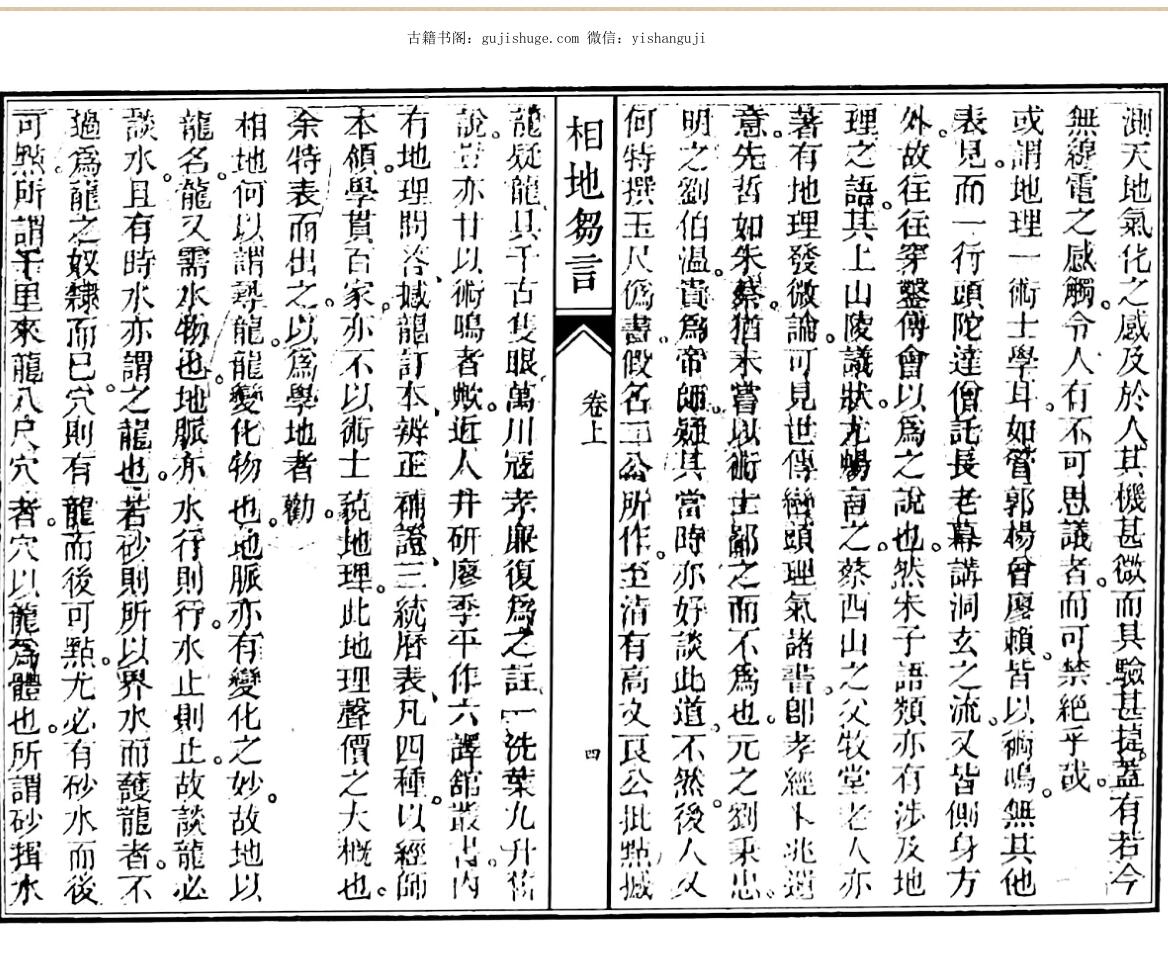 古籍书阁：gujishuge.com 微信：yishanguji
測天地氣化之感及於人其機甚微而其驗甚捷。蓋有若今
無線電之感觸。令人有不可思議者。而可禁絕乎哉。
或謂地理一術士學耳。如管郭楊曾廖賴。皆以術鳴。無其他
表見。而一行頭陀達僧託長老幕講洞玄之流。又皆側身方
外。故往往穿鑿傅會以爲之說也。然朱子語類亦有涉及地
理之語。其上山陵議狀。尤暢言之。蔡西山之父牧堂老人亦
著有地理發微論。可見世傳巒頭理氣諸書。即孝經卜兆遺
意。先哲如朱蔡。猶未嘗以術士鄙之而不爲也。元之劉秉忠。
明之劉伯溫。實爲帝師。疑其當時亦好談此道。不然。後人又
何特撰玉尺僞書。假名二公所作。至清有高文良公批點撼
相地芻言
卷上
四
龍疑龍。具千古隻眼。萬川寇孝廉復爲之註。一洗葉九升舊
說。豈亦甘以術鳴者歟。近人井研廖季平作六譯舘叢書。內
有地理問答、撼龍訂本、辨正補證、三統曆表、凡四種。以經師
本領。學貫百家。亦不以術士薄地理。此地理聲價之大概也。
余特表而出之。以爲學地者勸。
相地何以謂尋龍。龍變化物也。地脈亦有變化之妙。故地以
龍名。龍又需水物也。地脈亦水行則行。水止則止。故談龍必
談水。且有時水亦謂之龍也。若砂則所以界水而護龍者。不
過爲龍之奴隸而已。穴則有龍而後可點。尤必有砂水而後
可點。所謂千里來龍八尺穴者。穴以龍爲體也。所謂砂揖水